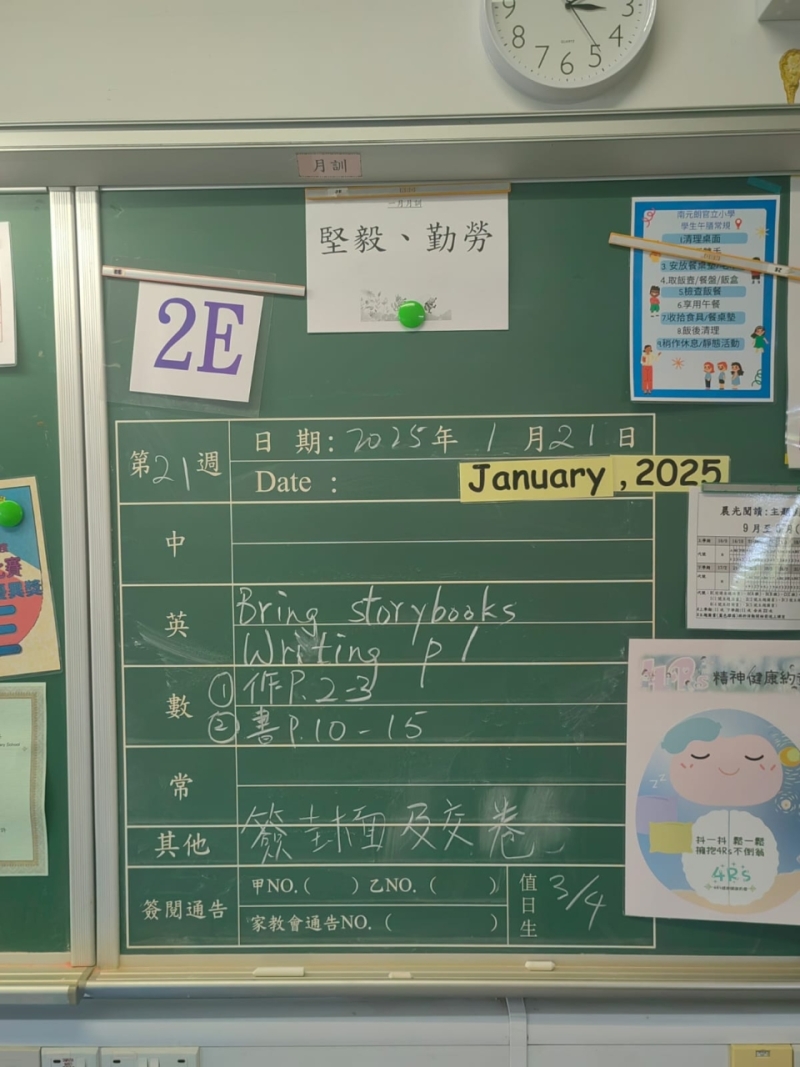 9 3
8 4
7 6 5
月訓
一月月訓
堅毅、勤勞
2E
南元朗官立小學
學生午膳常規
1清理桌面
4.取飯壺/餐盤/飯盒
5檢查飯餐
6.享用午餐
7.收拾食具/餐桌墊
8.飯後清理
9.稍作休息/靜態活動
第21週
日 期: 2025年 1 月21日
Date :
January, 2025
中
英
Bring storybooks
Writing p1
數
① 作P.2-3
② 書P.10-15
常
其他
簽封面及交卷
簽閱通告
甲NO.( )乙NO.( )
家教會通告NO.( )
值日生
3/4
晨光閱讀:主題
9月至
4Rs 精神健康約
抖一抖 鬆一鬆
擁抱4Rs不倒翁
4Rs